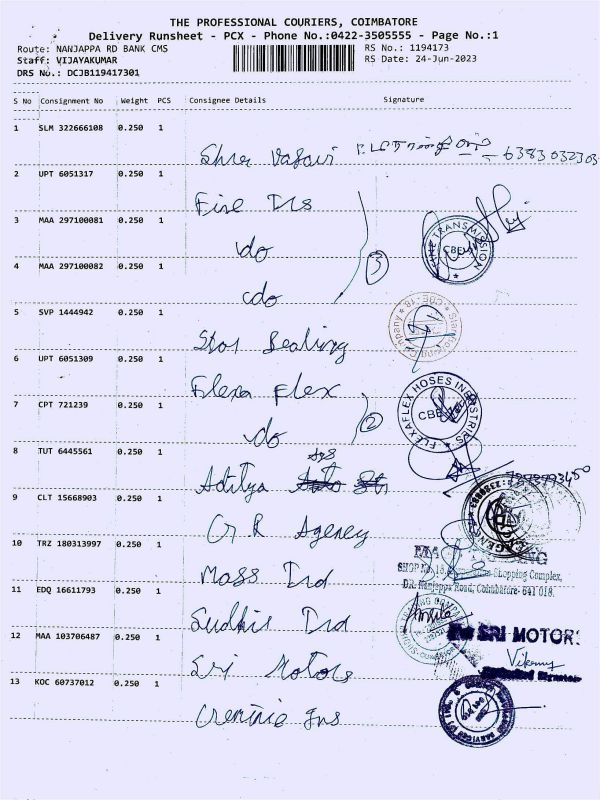 THE PROFESSIONAL COURIERS, COIMBATORE
Delivery Runsheet - PCX - Phone No.:0422-3505555 - Page No.:1
Route: NANJAPPA RD BANK CMS RS No.: 1194173
Staff: VIJAYAKUMAR RS Date: 24-Jun-2023
DRS No.: DCJB119417301
S No Consignment No Weight PCS Consignee Details Signature
1 SLM 322666108 0.250 1
6383032303
2 UPT 6051317 0.250 1
Fire
3 MAA 297100081 0.250 1
do
TRANSMISSION
CBE
3
4 MAA 297100082 0.250 1
do
5 SVP 1444942 0.250 1
Company
Star
6 UPT 6051309 0.250 1
Flexa Flex
FLEXAFLEX HOSES INDUSTRIES
CBE
7 CPT 721239 0.250 1
do
2
8 TUT 6445561 0.250 1
Aditya
9 CLT 15668903 0.250 1
Agency
10 TRZ 180313997 0.250 1
Mass Trd
Shopping Complex,
Nanjappa Road, Coimbatore- 641 018.
11 EDQ 16611793 0.250 1
Sudhir Trd
12 MAA 103706487 0.250 1
Sri Motors
SRI MOTORS
13 KOC 60737012 0.250 1